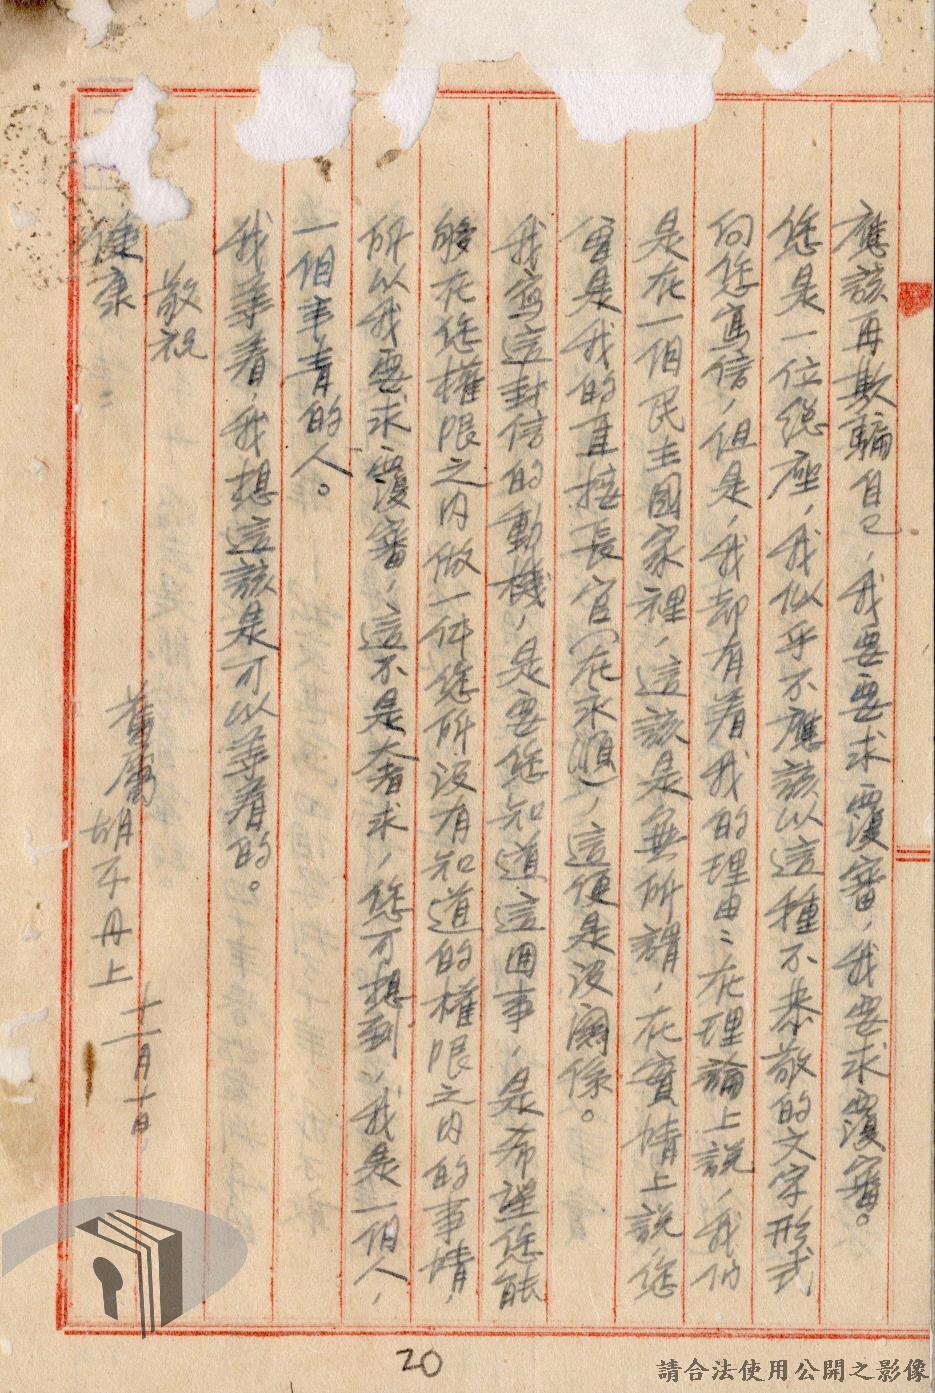 應該再欺騙自己，我要要求覆審，我要求覆審。
您是一位總座，我似乎不應該以這種不恭敬的文字形式
向您寫信，但是，我却有着我的理由：在理論上說，我們
是在一個民主國家裡，這該是無所謂，在實情上說您
曾是我的直接長官（在永順），這便是沒関係。
我寫這封信的動機，是要您知道這週事，是希望您能
够在您權限之内做一件您所沒有知道的權限之内的事情，
所以我要求覆審，這不是奢求，您可想到，我是一個人，
一個事青的人。
我等着，我想這該是可以等着的。
敬祝
健康
舊屬 胡子丹上 十一月十日
20
請合法使用公開之影像